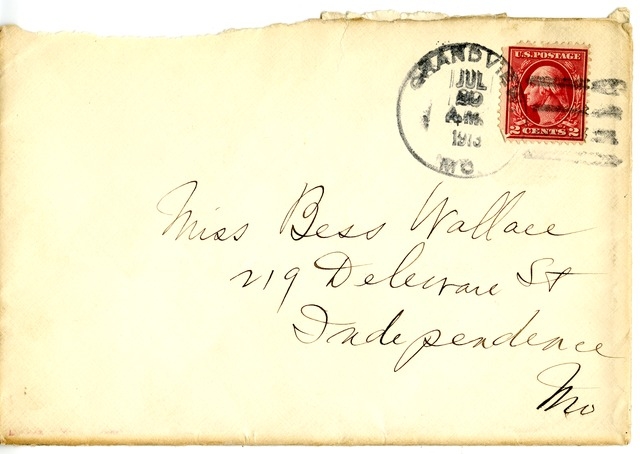 GRANDVIEW
JUL
30
A.M.
1913
MO.
U.S. POSTAGE
2 CENTS 2
Miss Bess Wallace
219 Deleware St
Independence
Mo